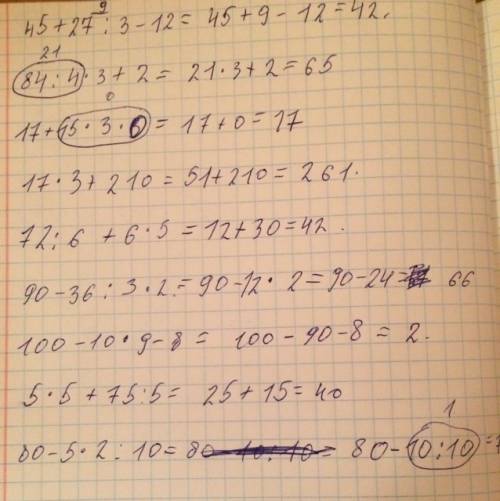 9
45+27:3-12= 45+9-12=42.
21
84:4·3+2= 21·3+2=65
0
17+15·3·0= 17+0=17
17·3+210=51+210=261.
72:6 +6·5=12+30=42.
90-36:3·2=90-12·2=90-24= 66
100-10·9-8= 100-90-8=2.
5·5+75:5= 25+15=40
1
80-5·2:10=80-10:10= 80-10:10=7